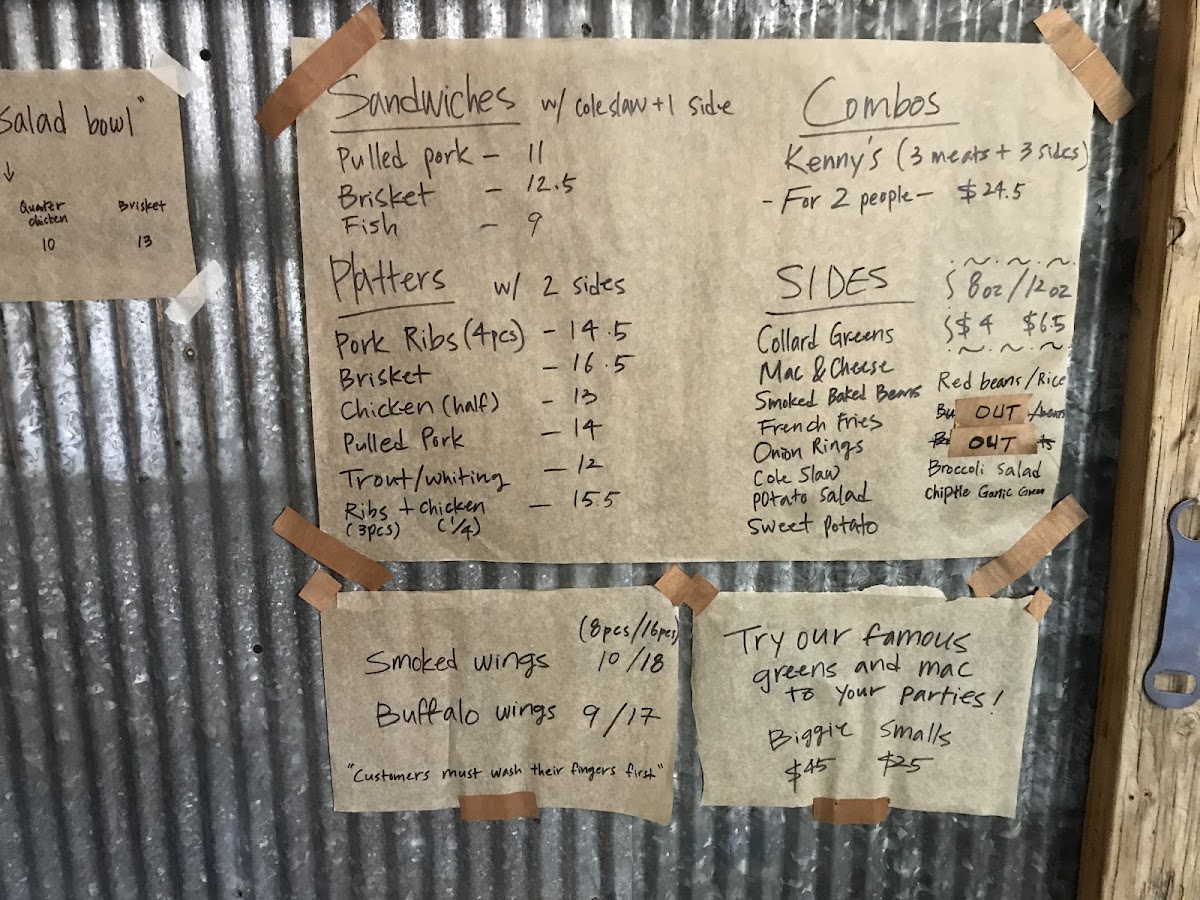 Salad bowl"
↓
Quater chicken
10
Brisket
13
Sandwiches w/ coleslaw + 1 side
Pulled pork - 11
Brisket - 12.5
Fish - 9
Platters w/ 2 sides
Pork Ribs (4pcs) - 14.5
Brisket - 16.5
Chicken (half) - 13
Pulled Pork - 14
Trout/whiting - 12
Ribs + chicken - 15.5
(3pcs) (1/4)
Combos
Kenny's (3 meats + 3 sides)
- For 2 people - $24.5
SIDES
8oz/12oz
$4 $6.5
Collard Greens
Mac & Cheese
Smoked Baked Beans
French Fries
Onion Rings
Cole Slaw
Potato Salad
Sweet Potato
Red beans/Rice
OUT
OUT
Broccoli Salad
Chiptle Garlic Green
(8pcs/16pcs)
Smoked wings 10/18
Buffalo wings 9/17
"Customers must wash their fingers first"
Try our famous
greens and mac
to your parties!
Biggie Smalls
$45 $25